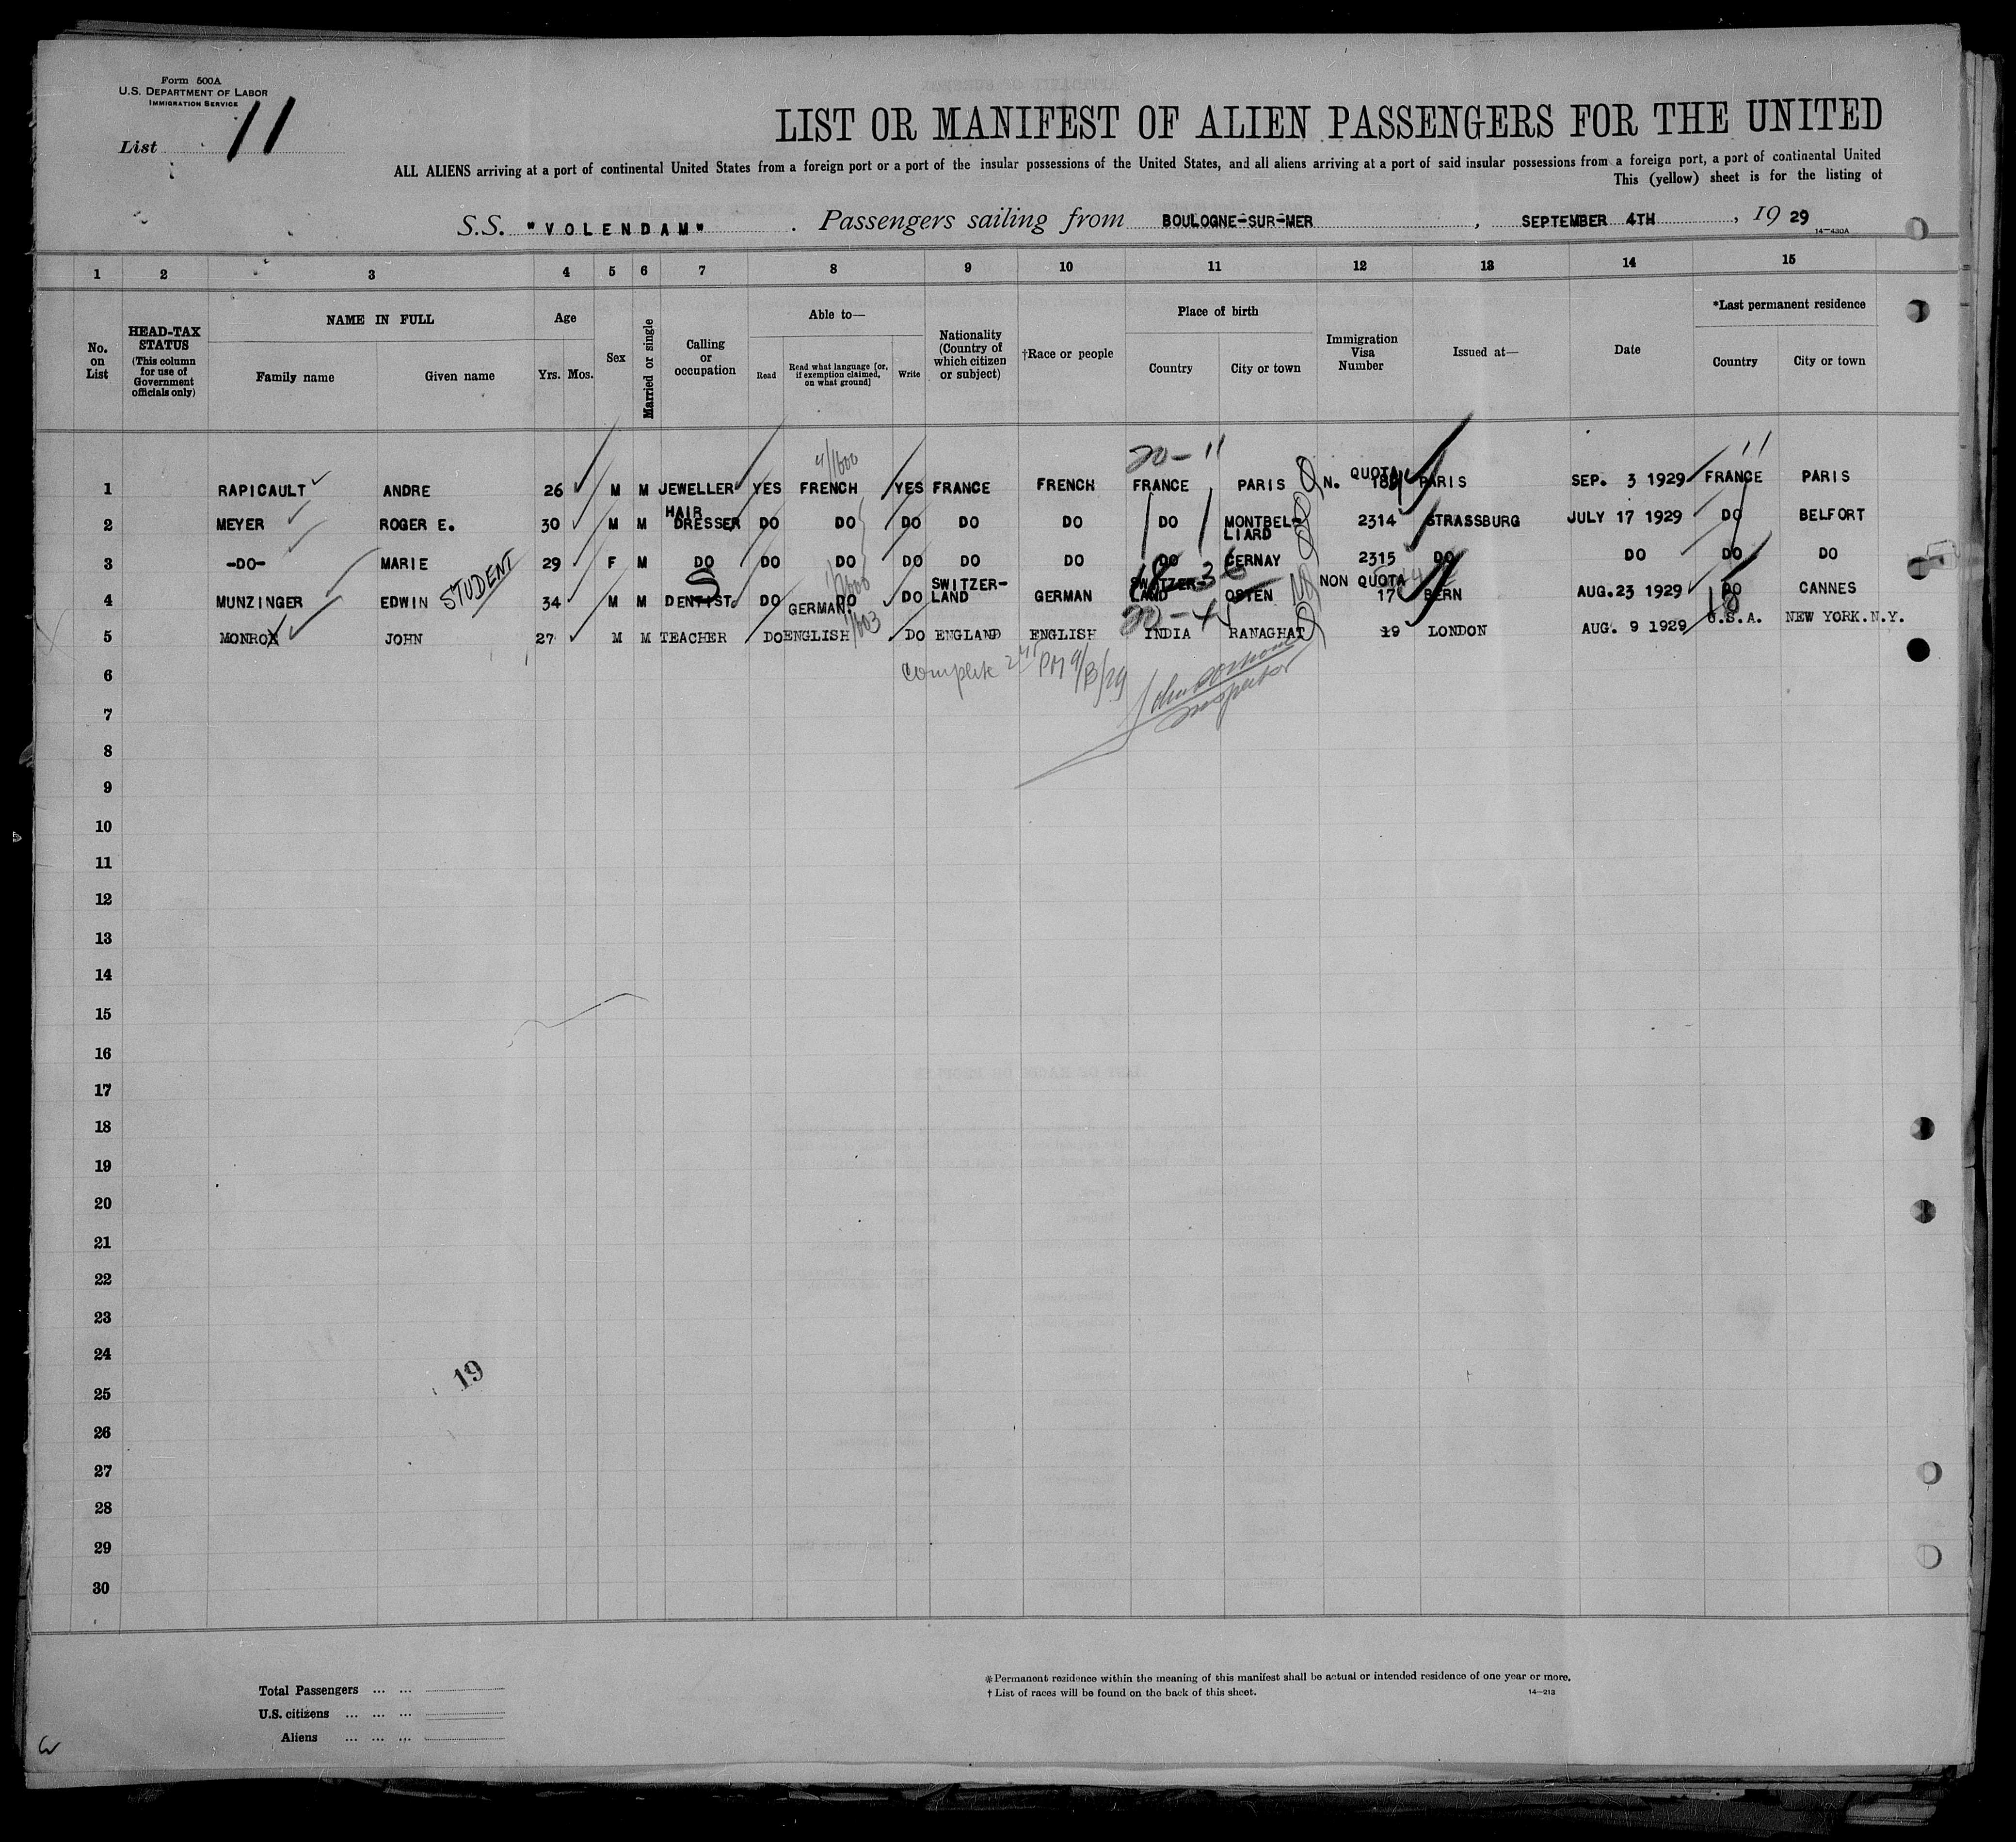 Form 500A
U.S. DEPARTMENT OF LABOR
IMMIGRATION SERVICE
List 11
LIST OR MANIFEST OF ALIEN PASSENGERS FOR THE UNITED
ALL ALIENS arriving at a port of continental United States from a foreign port or a port of the insular possessions of the United States, and all aliens arriving at a port of said insular possessions from a foreign port, a port of continental United
This (yellow) sheet is for the listing of
S.S. "VOLENDAM" . Passengers sailing from BOULOGNE-SUR-MER , SEPTEMBER 4TH , 19 29
14-430A
1 2 3 4 5 6 7 8 9 10 11 12 13 14 15
No. on List
HEAD-TAX STATUS (This column for use of Government officials only)
NAME IN FULL
Family name Given name
Age
Yrs. Mos.
Sex
Married or single
Calling or occupation
Able to—
Read Read what language [or, if exemption claimed, on what ground] Write
Nationality (Country of which citizen or subject)
†Race or people
Place of birth
Country City or town
Immigration Visa Number
Issued at—
Date
*Last permanent residence
Country City or town
20-11 11
QUOTA
1 RAPICAULT ANDRE 26 M M JEWELLER YES FRENCH YES FRANCE FRENCH FRANCE PARIS N. PARIS SEP. 3 1929 FRANCE PARIS
2 MEYER ROGER E. 30 M M HAIR DRESSER DO DO DO DO DO DO MONTBEL-LIARD 2314 STRASSBURG JULY 17 1929 DO BELFORT
3 -DO- MARIE 29 F M DO DO DO DO DO DO DO CERNAY 2315 DO DO DO DO
STUDENT
4 MUNZINGER EDWIN 34 M M DENTIST. DO GERMAN. DO DO SWITZER-LAND GERMAN SWITZER-LAND OSTEN NON QUOTA 17 BERN AUG.23 1929 DO CANNES
18
20-4
5 MONROE JOHN 27 M M TEACHER DO ENGLISH DO ENGLAND ENGLISH INDIA RANAGHAT 19 LONDON AUG. 9 1929 U.S.A. NEW YORK.N.Y.
6 Complete
Inspector
7
8
9
10
11
12
13
14
15
16
17
18
19
20
21
22
23
24
19
25
26
27
28
29
30
Total Passengers ... ...
U.S. citizens ... ... ...
Aliens ... ... ...
*Permanent residence within the meaning of this manifest shall be actual or intended residence of one year or more.
†List of races will be found on the back of this sheet. 14-213